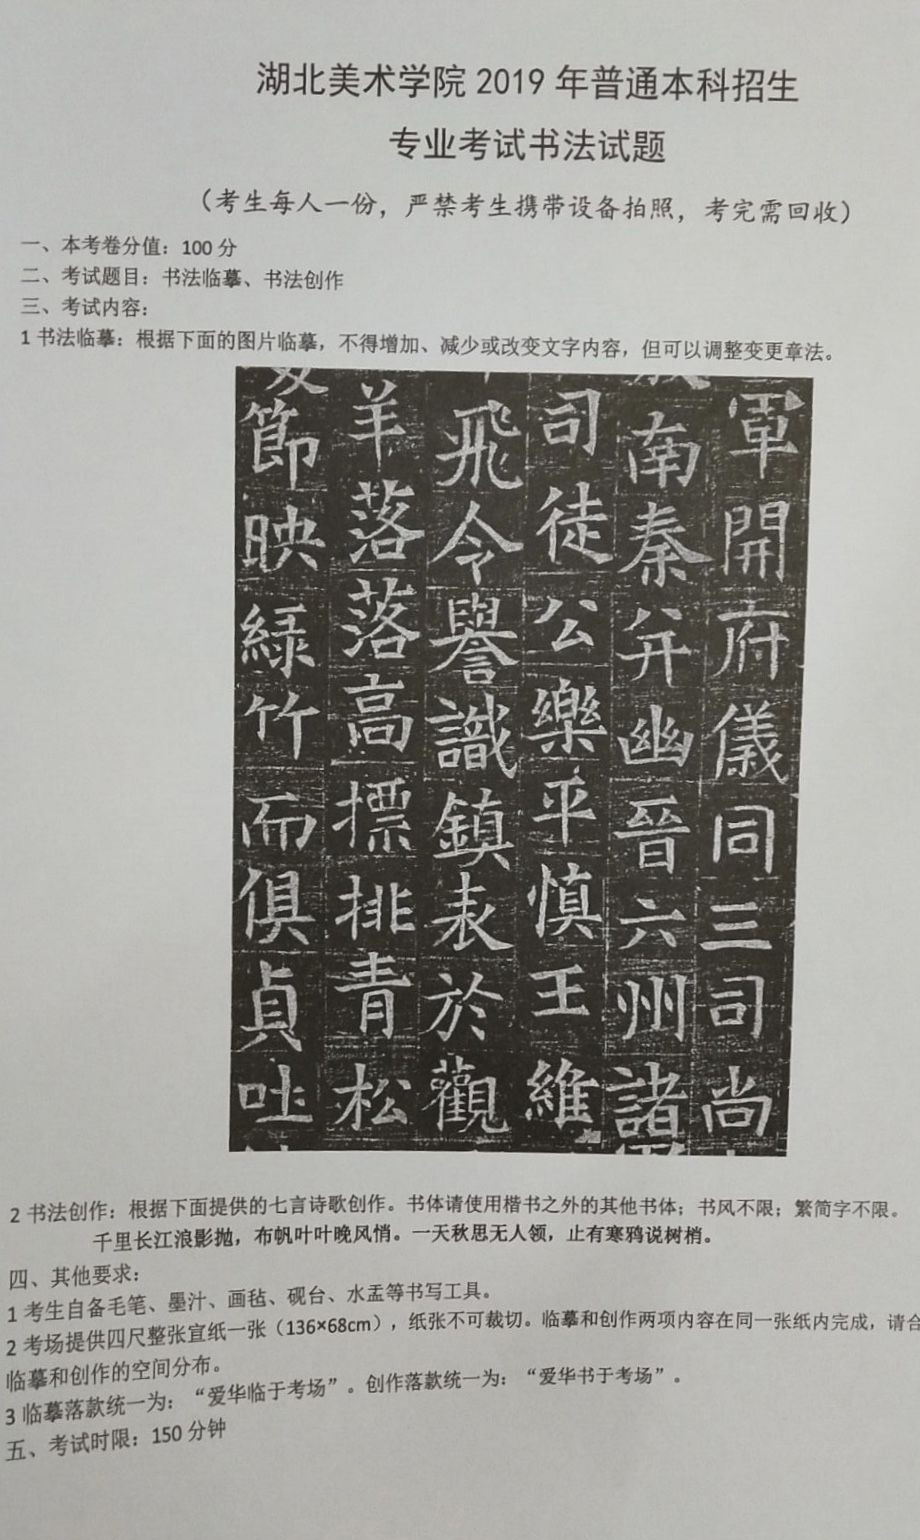 湖北美术学院 2019 年普通本科招生
专业考试书法试题
（考生每人一份，严禁考生携带设备拍照，考完需回收）
一、本考卷分值：100 分
二、考试题目：书法临摹、书法创作
三、考试内容：
1 书法临摹：根据下面的图片临摹，不得增加、减少或改变文字内容，但可以调整变更章法。
軍開府儀同三司尚
南秦并幽晉六州諸
司徒公樂平慎王維
飛令譽識鎮表於觀
羊落落高摽挑青松
節映綠竹而俱貞吐
2 书法创作：根据下面提供的七言诗歌创作。书体请使用楷书之外的其他书体；书风不限；繁简字不限。
千里长江浪影抛，布帆叶叶晚风悄。一天秋思无人领，止有寒鸦说树梢。
四、其他要求：
1 考生自备毛笔、墨汁、画毡、砚台、水盂等书写工具。
2 考场提供四尺整张宣纸一张（136×68cm），纸张不可裁切。临摹和创作两项内容在同一张纸内完成，请合
临摹和创作的空间分布。
3 临摹落款统一为：“爱华临于考场”。创作落款统一为：“爱华书于考场”。
五、考试时限：150 分钟